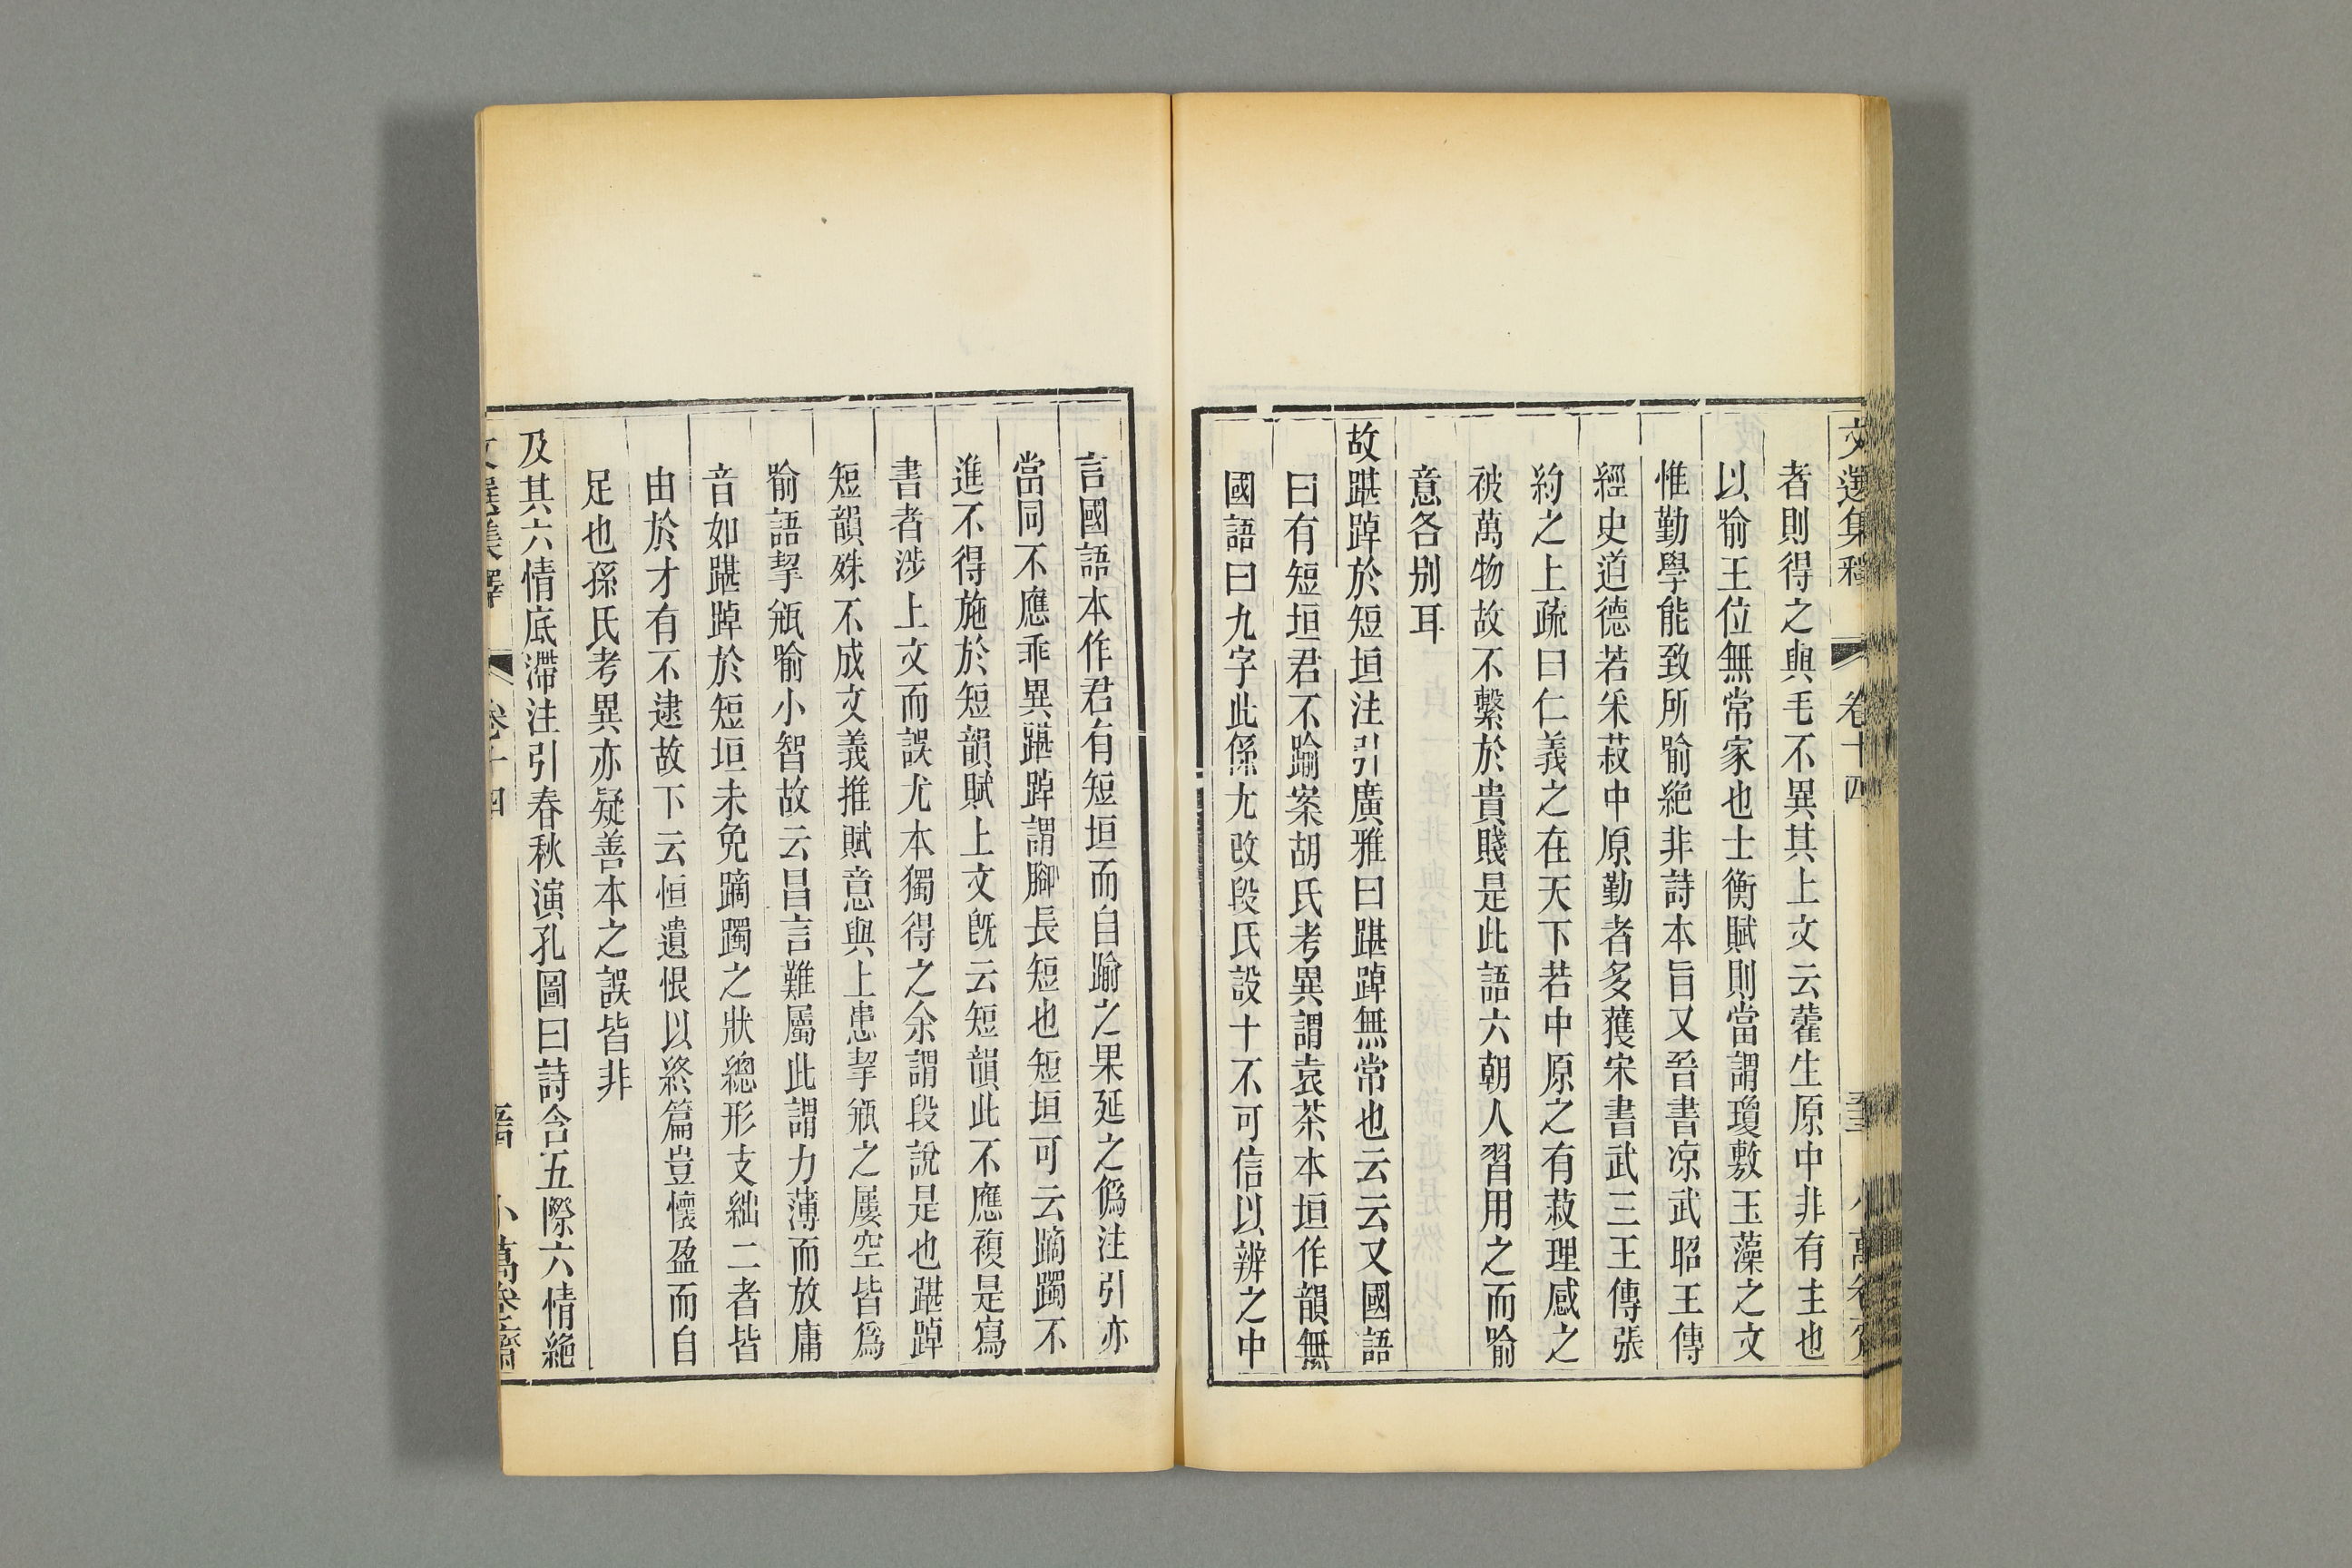 文選集釋 卷十四 小萬卷齋
者則得之與毛不異其上文云藿生原中非有主也
以喻王位無常家也士衡賦則當謂瓊敷玉藻之文
惟勤學能致所喻絶非詩本旨又晉書凉武昭王傳
經史道德若采菽中原勤者多獲宋書武三王傳張
約之上疏曰仁義之在天下若中原之有菽理感之
被萬物故不繫於貴賤是此語六朝人習用之而喻
意各别耳
故踸踔於短垣注引廣雅曰踸踔無常也云云又國語
曰有短垣君不踰案胡氏考異謂袁茶本垣作韻無
國語曰九字此係尤改段氏設十不可信以辨之中
言國語本作君有短垣而自踰之果延之僞注引亦
當同不應乖異踸踔謂腳長短也短垣可云蹢躅不
進不得施於短韻賦上文旣云短韻此不應複是寫
書者涉上文而誤尤本獨得之余謂段說是也踸踔
短韻殊不成文義推賦意與上患挈瓶之屢空皆爲
喻語挈瓶喻小智故云昌言難屬此謂力薄而放庸
音如踸踔於短垣未免蹢躅之狀總形支絀二者皆
由於才有不逮故下云恒遺恨以終篇豈懷盈而自
足也孫氏考異亦疑善本之誤皆非
及其六情底滯注引春秋演孔圖曰詩含五際六情絶
卷十四 小萬卷齋